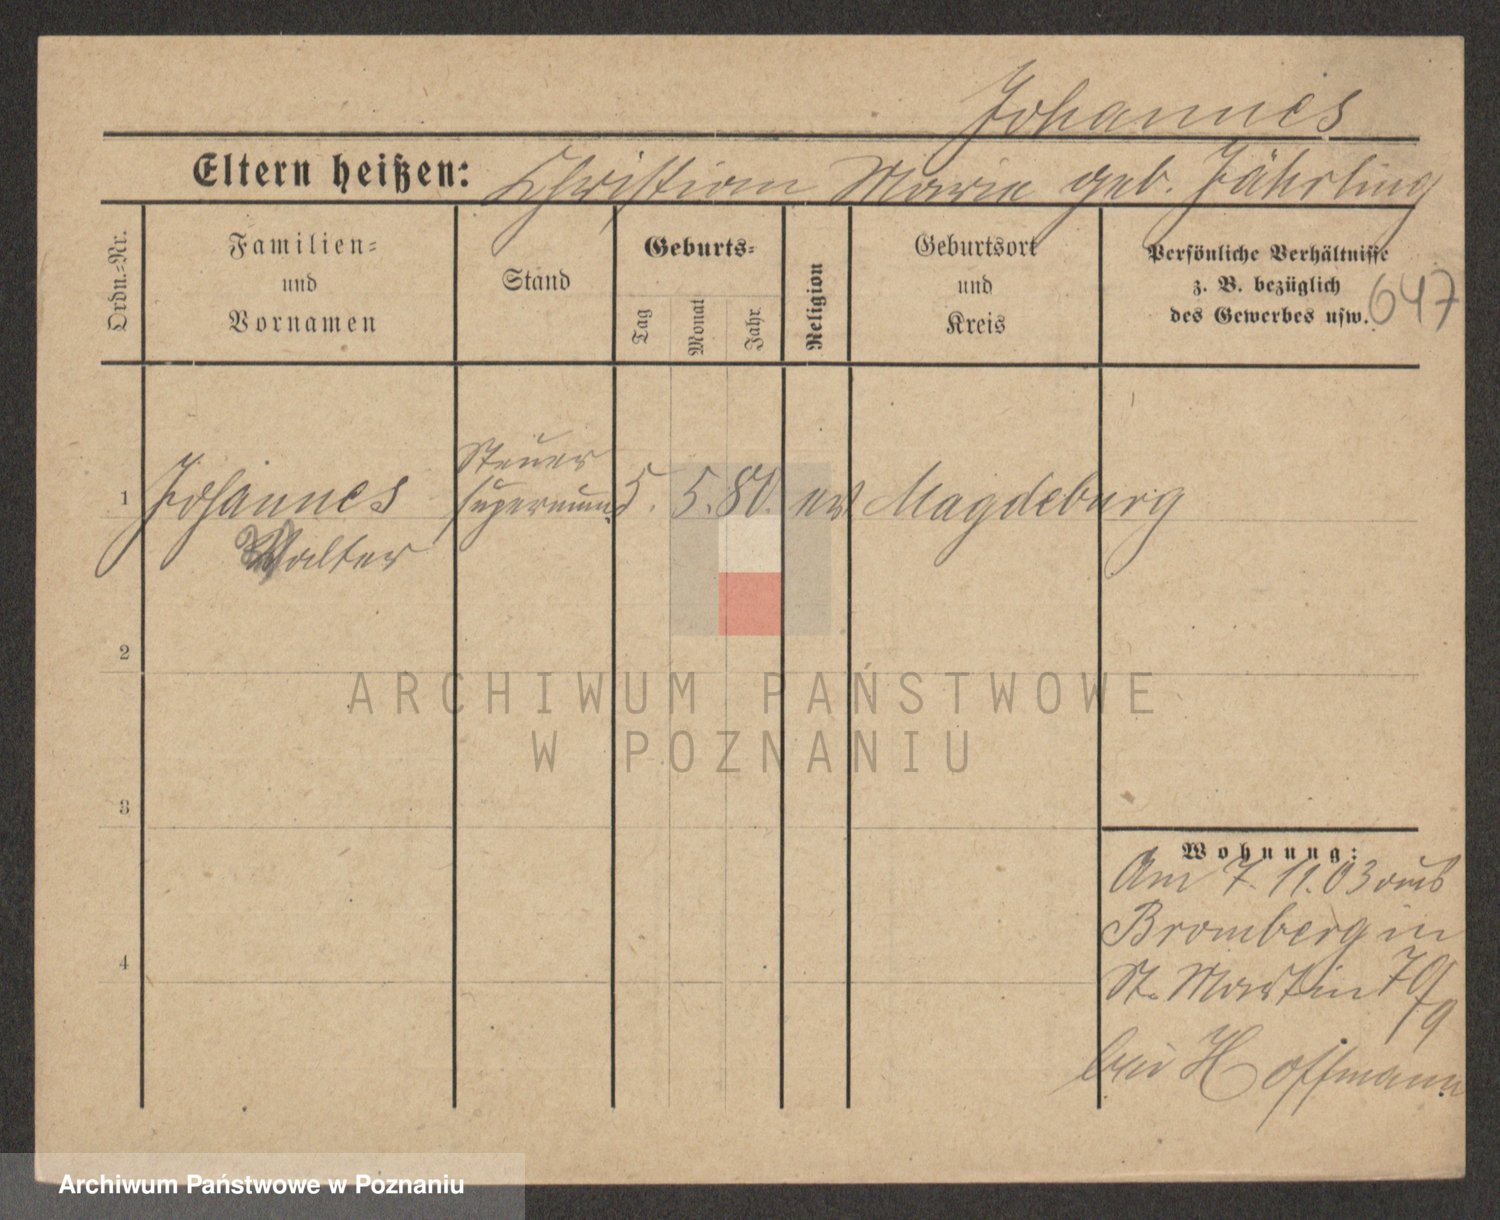 Johannes
Eltern heißen: Christian Marie geb. Jährling
Ordn.=Nr.
Familien=
und
Vornamen
Stand
Geburts=
Tag
Monat
Jahr
Religion
Geburtsort
und
Kreis
Persönliche Verhältnisse
z. B. bezüglich
des Gewerbes usw.
647
1 Johannes Steuer 5. 5. 80. ev Magdeburg
supernum.
Walter
2
3
4
Wohnung:
Am 7. 11. 03 aus
Bromberg in
St. Martin
bei Hoffmann
ARCHIWUM PAŃSTWOWE
W POZNANIU
Archiwum Państwowe w Poznaniu